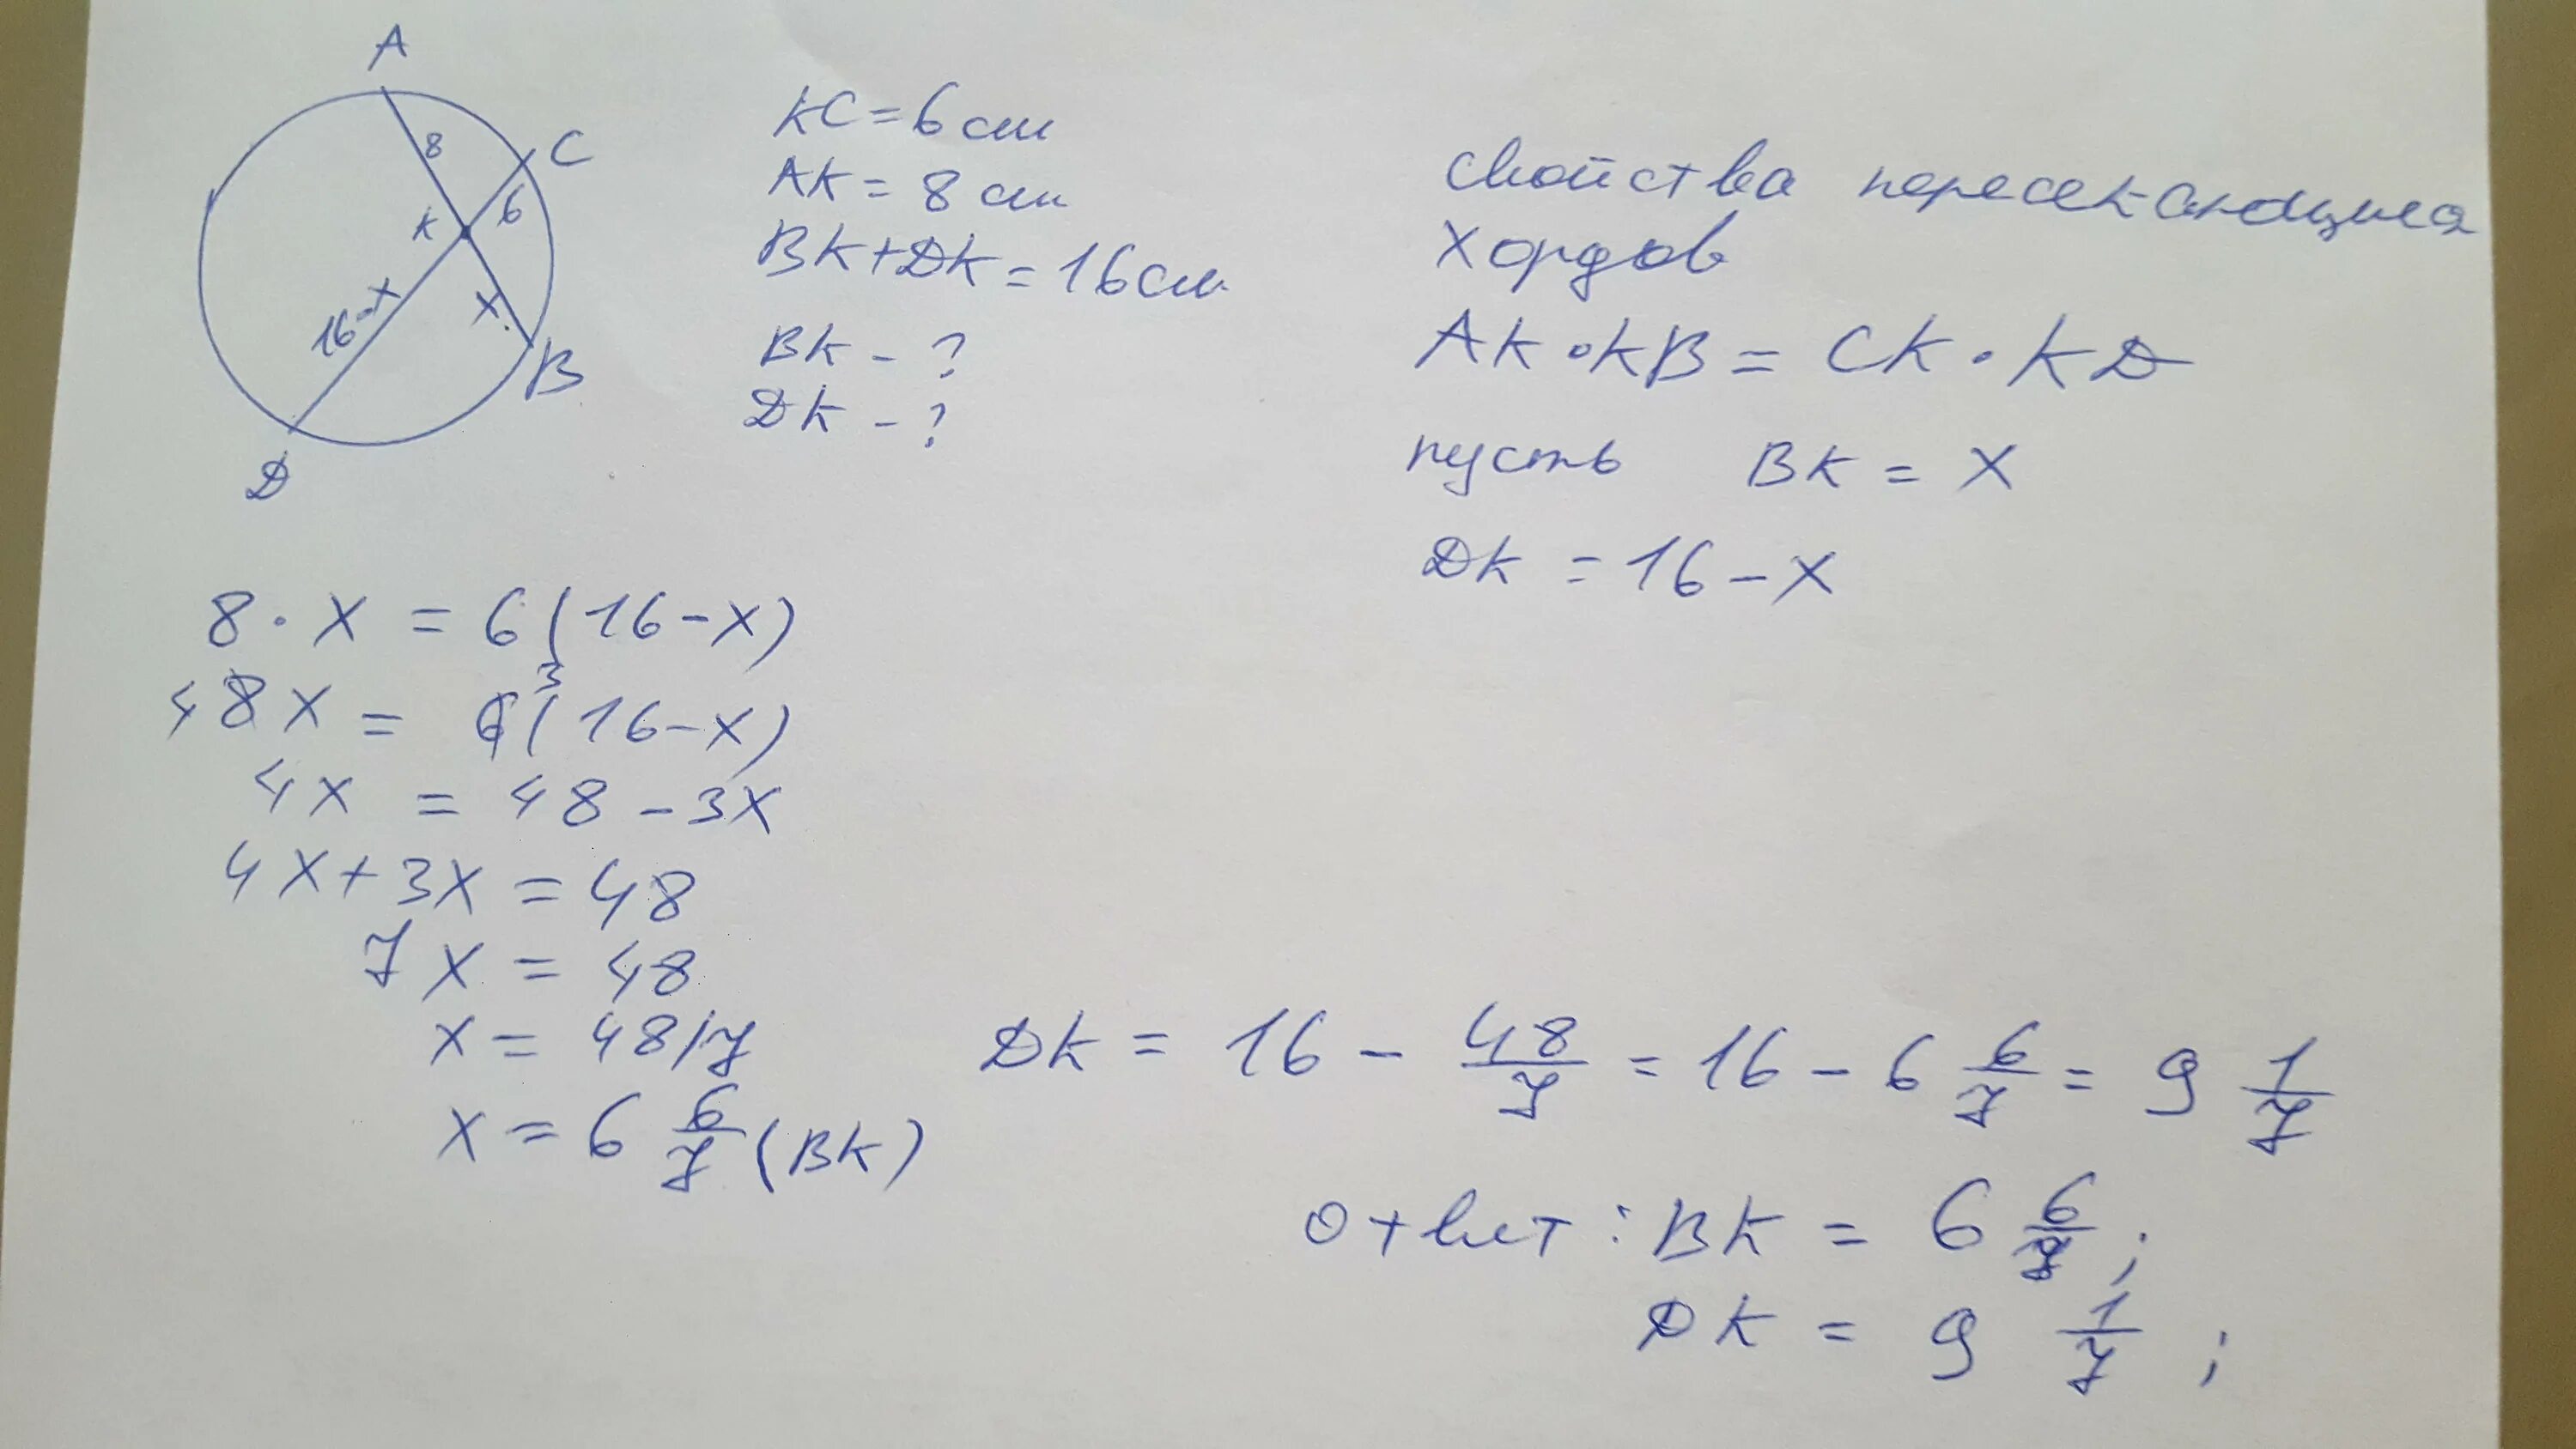 A
8
C
6
K
16-x
x
B
D
KC = 6 см
AK = 8 см
BK + DK = 16 см
BK - ?
DK - ?
свойства пересекающися
хордов
AK · KB = CK · KD
пусть BK = x
DK = 16 - x
8 · x = 6(16 - x)
48x = 6 3 (16 - x)
4x = 48 - 3x
4x + 3x = 48
7x = 48
x = 48/7
x = 6 6/7 (BK)
DK = 16 - 48/7 = 16 - 6 6/7 = 9 1/7
ответ: BK = 6 6/7 ;
DK = 9 1/7 ;